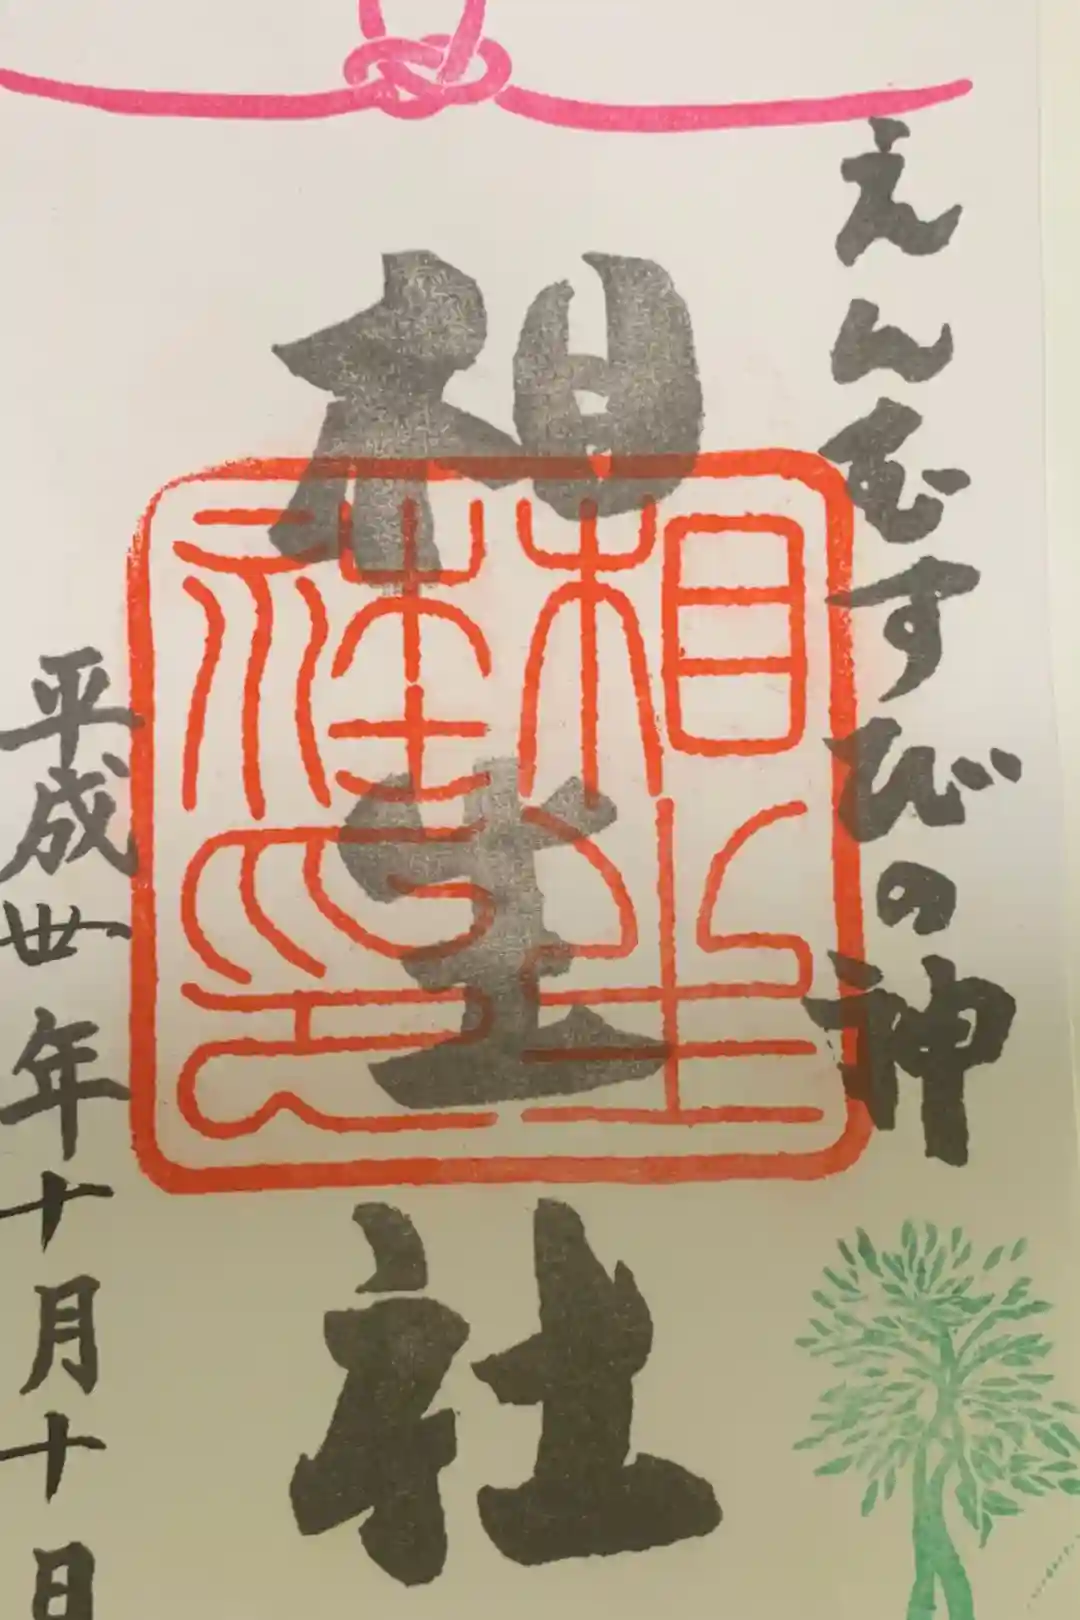 えんむすびの神
相生社
相生社印
平成卅年十月十日